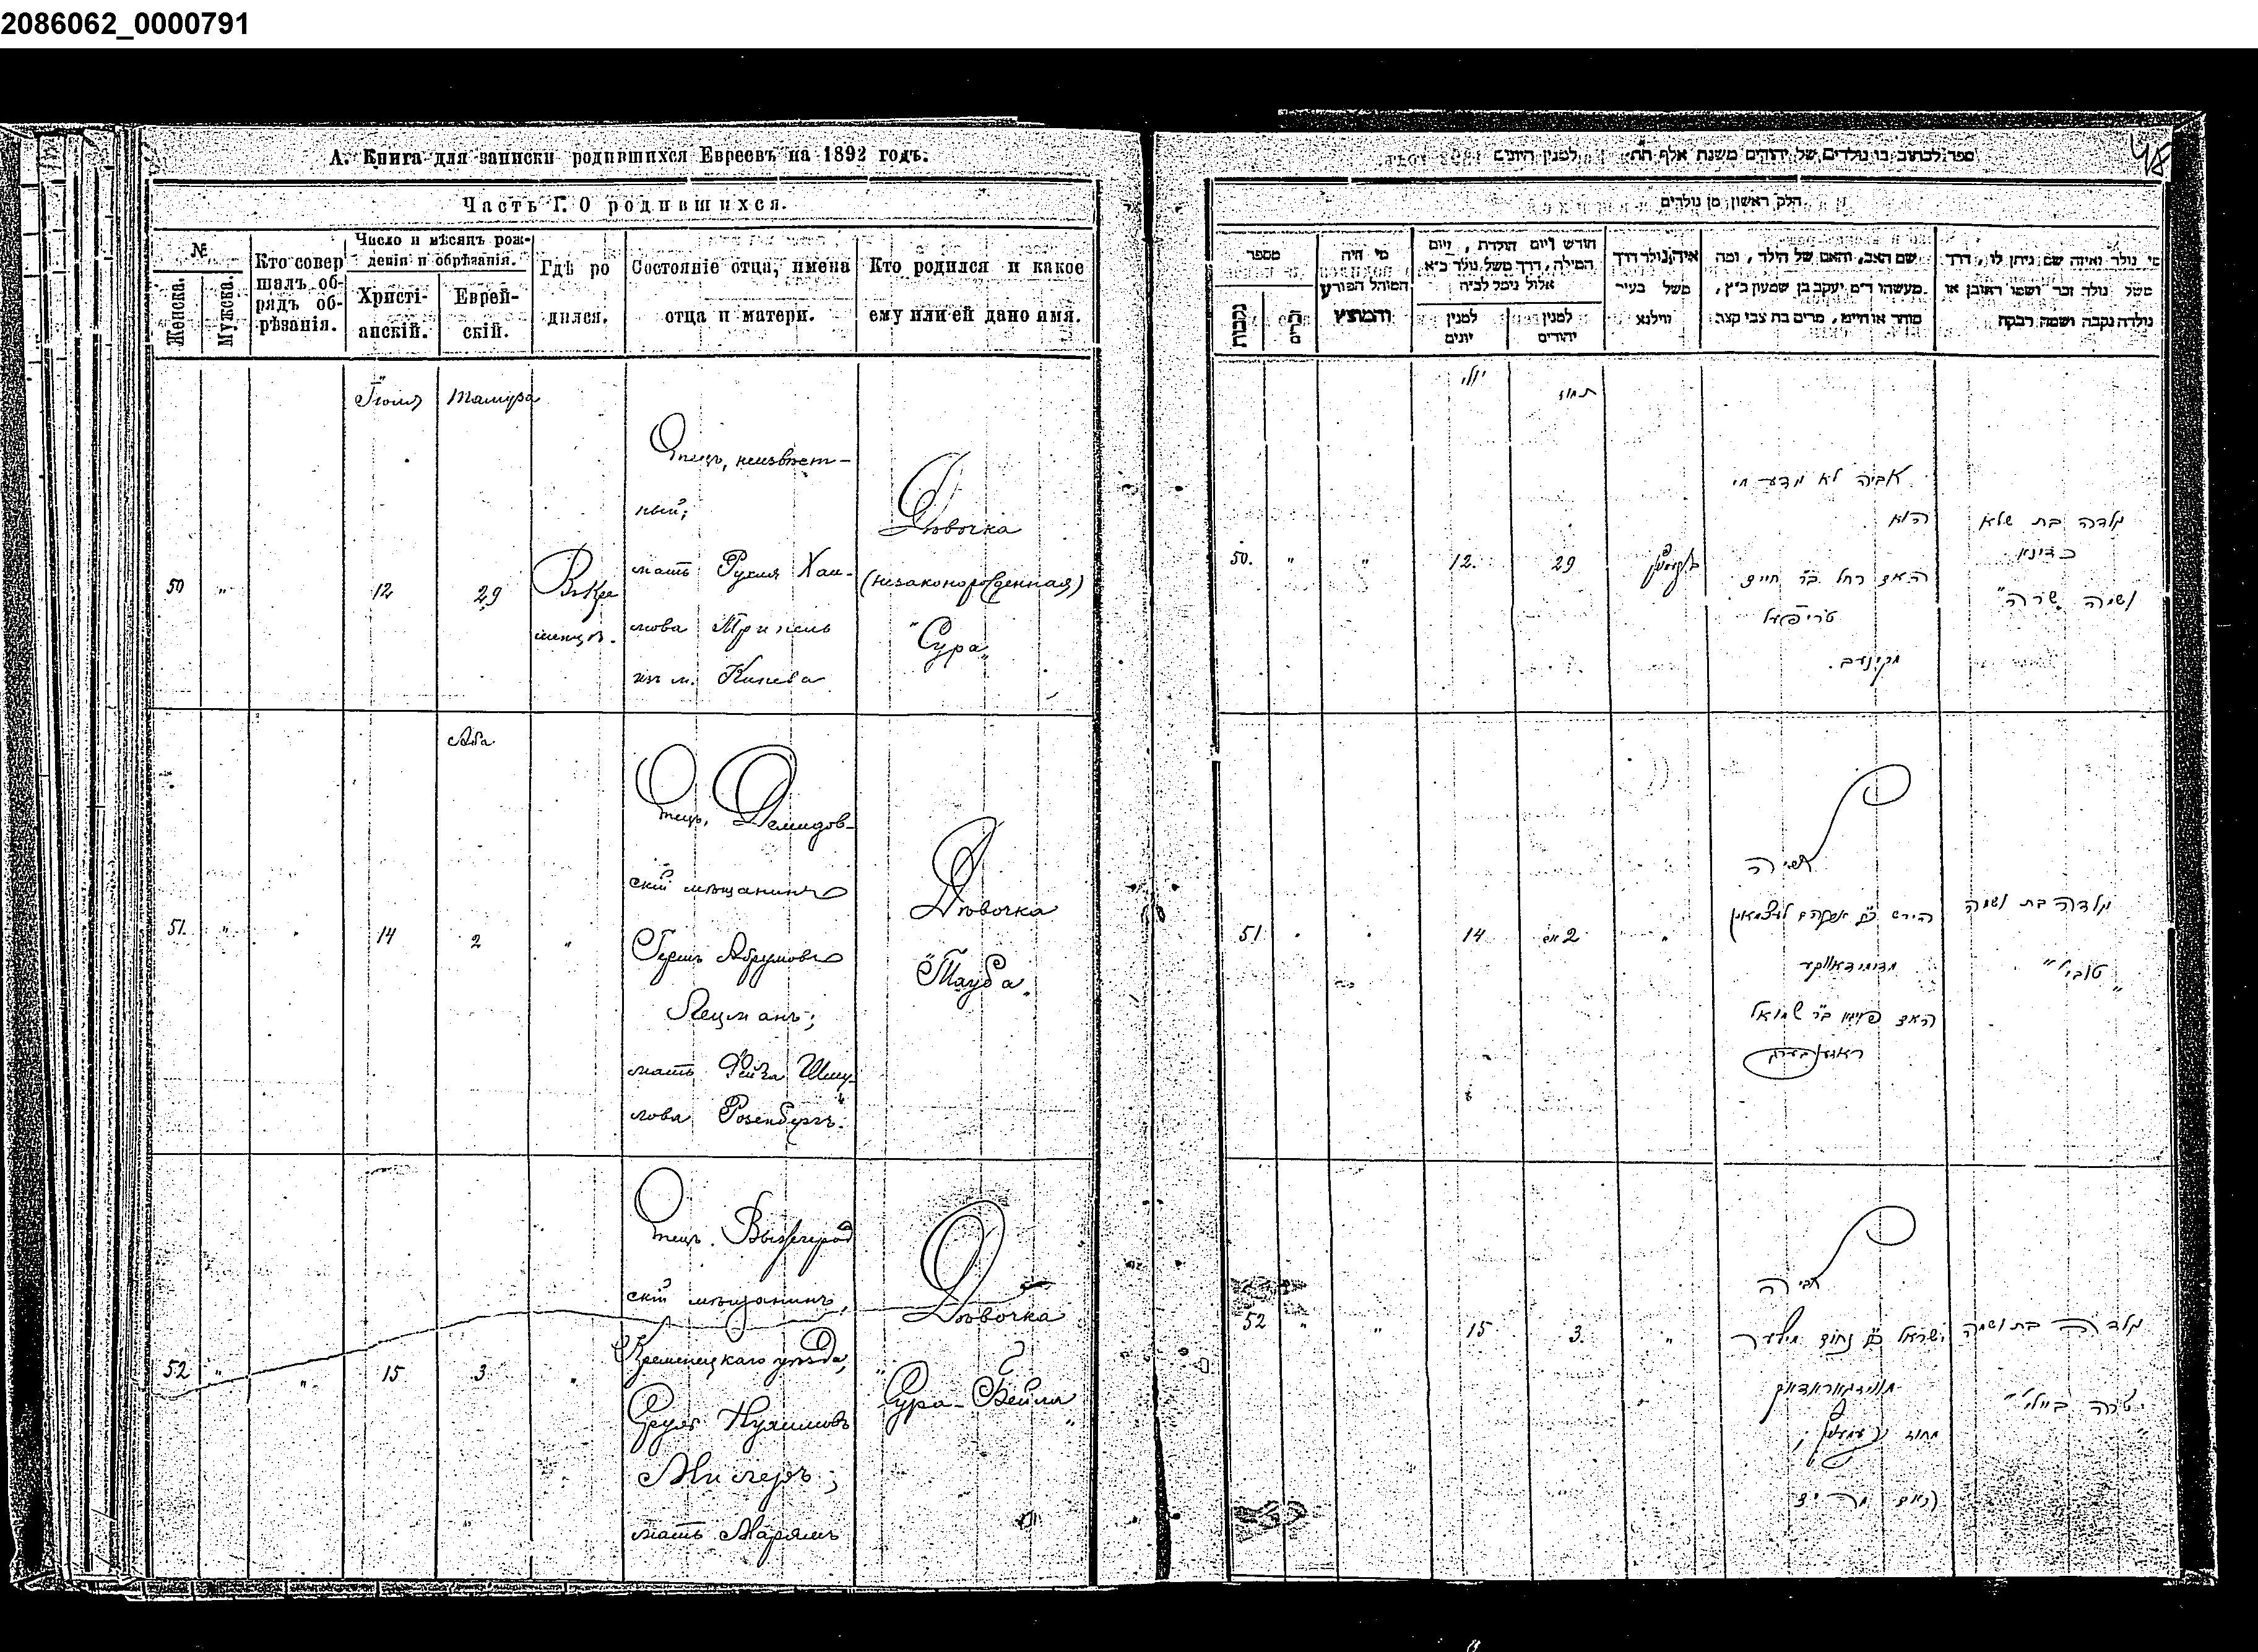 2086062_0000791
А. Книга для записки родившихся Евреевъ на 1892 годъ.
Часть I. О родившихся.
№
Женска.
Мужска.
Кто совер
шалъ об-
рядъ об-
рѣзанія.
Число и мѣсяцъ рож-
денія и обрѣзанія.
Христі-
анскій.
Еврей-
скій.
Гдѣ ро
дился.
Состояніе отца, имена
отца и матери.
Кто родился и какое
ему или ей дано имя.
Іюля
Тамуза
50
"
12
29
Въ Кре
менцѣ.
Отецъ, неизвѣст-
ный;
мать Рухля Хаи-
мова Трипель
изъ м. Кинева
Дѣвочка
(незаконорожденная)
"Сура"
Аба
51.
"
"
14
2
"
Отецъ, Демидов-
скій мѣщанинъ
Герш Абрумовъ
Лецманъ;
мать Фейга Шму-
лова Розенбергъ.
Дѣвочка
"Тауба"
52
"
"
15
3
"
Отецъ, Вышегрод
скій мѣщанинъ,
Кременецкаго уѣзда,
Сруль Нухимовъ
Милеръ;
мать Марямъ
Дѣвочка
"Сура-Бейла"
48
ספר לכתוב בו נולדים של יהודים משנת אלף תת למנין היונים
חלק ראשון מן נולדים
מספר
נקבות
זכרים
מי היה
המוהל הפורע
והמוצץ
חודש ויום הולדת, ויום
המילה, דרך משל נולד כ״א
אלול נימל לכ״ה
למנין
יונים
למנין
יהודים
איה נולד דרך
משל בעיר
ווילנא
שם האב, והאם של הילד, ומה
מעשהו ד״מ יעקב בן שמעון כ״ץ,
סוחר או חייט, מרים בת צבי קצב
מי נולד ואיזה שם ניתן לו, דרך
משל נולד זכר ושמו ראובן או
נולדה נקבה ושמה רבקה
יולי
תמוז
50.
"
"
12.
29
אביה לא נודע מי
הוא
האם רחל ב״ר חיים
טריפעל
נולדה בת שלא
כדינא
ושמה "שרה"
51
"
"
14
2 אב
"
אביה
הירש ב״ר אברהם לעצמאן
האם פייגא ב״ר שמואל
ראזענבערג
נולדה בת ושמה
"טובי'"
52
"
"
15
3
"
אביה
ישראל ב״ר נחום מילער
מחוז קרעמעניץ;
האם מרים
נולדה בת ושמה
"שרה ביילי'"